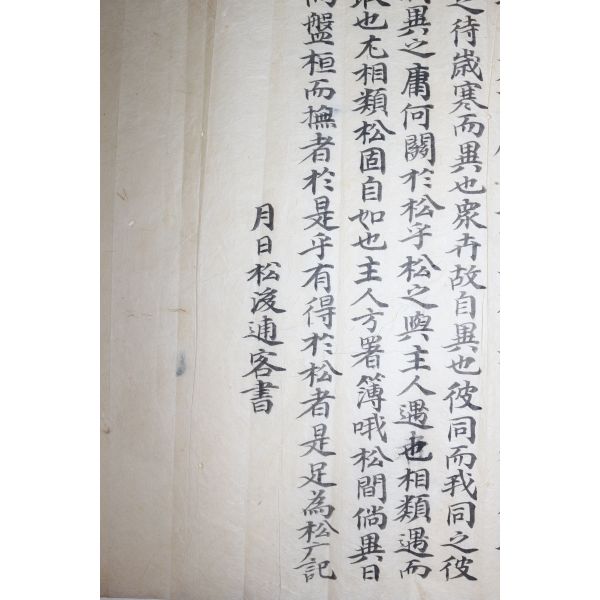 之待歲寒而異也衆卉故自異也彼同而我同之彼
異之庸何關於松乎松之與主人遇也相類遇而
也尤相類松固自如也主人方署簿哦松間倘異日
盤桓而撫者於是乎有得於松者是足為松广記
月日松逋客書